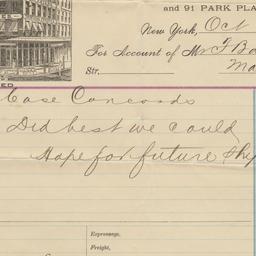 and 91 PARK PLA
New York, Oct
For Account of Mr F Ba
Str. Ma
Case Concords
Did best we could
Hope for future Shp
Expressage,
Freight,